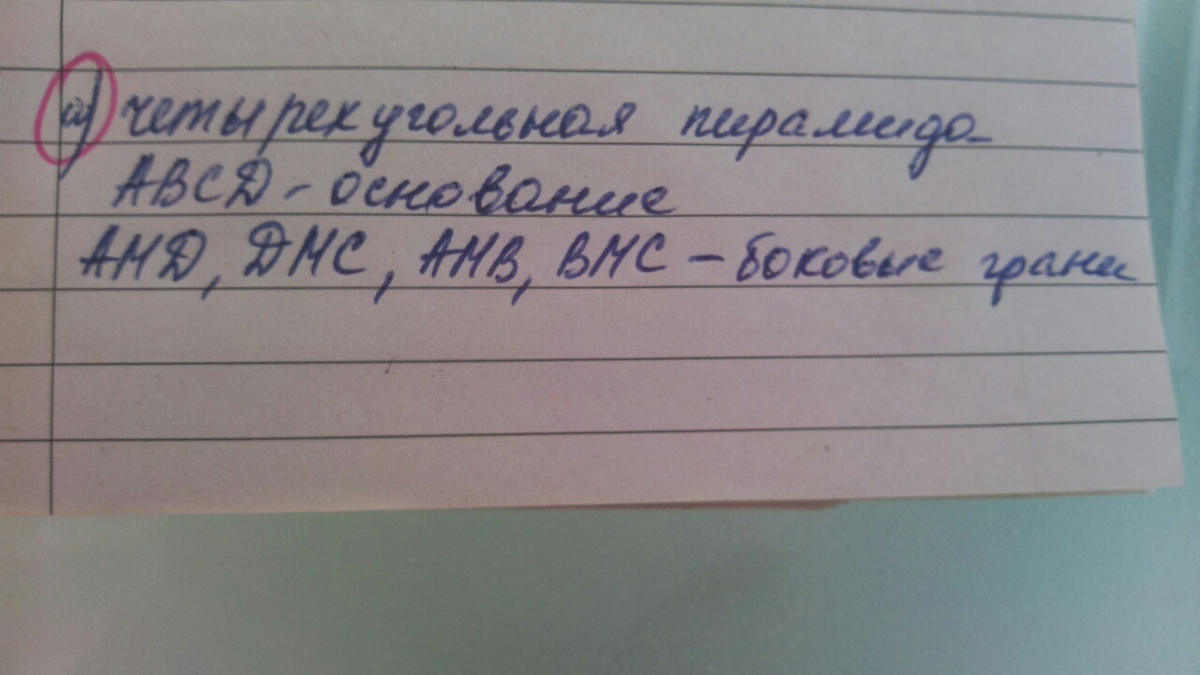 а) четырехугольная пирамида
ABCD - основание
AMD, DMC, AMB, BMC - боковые грани